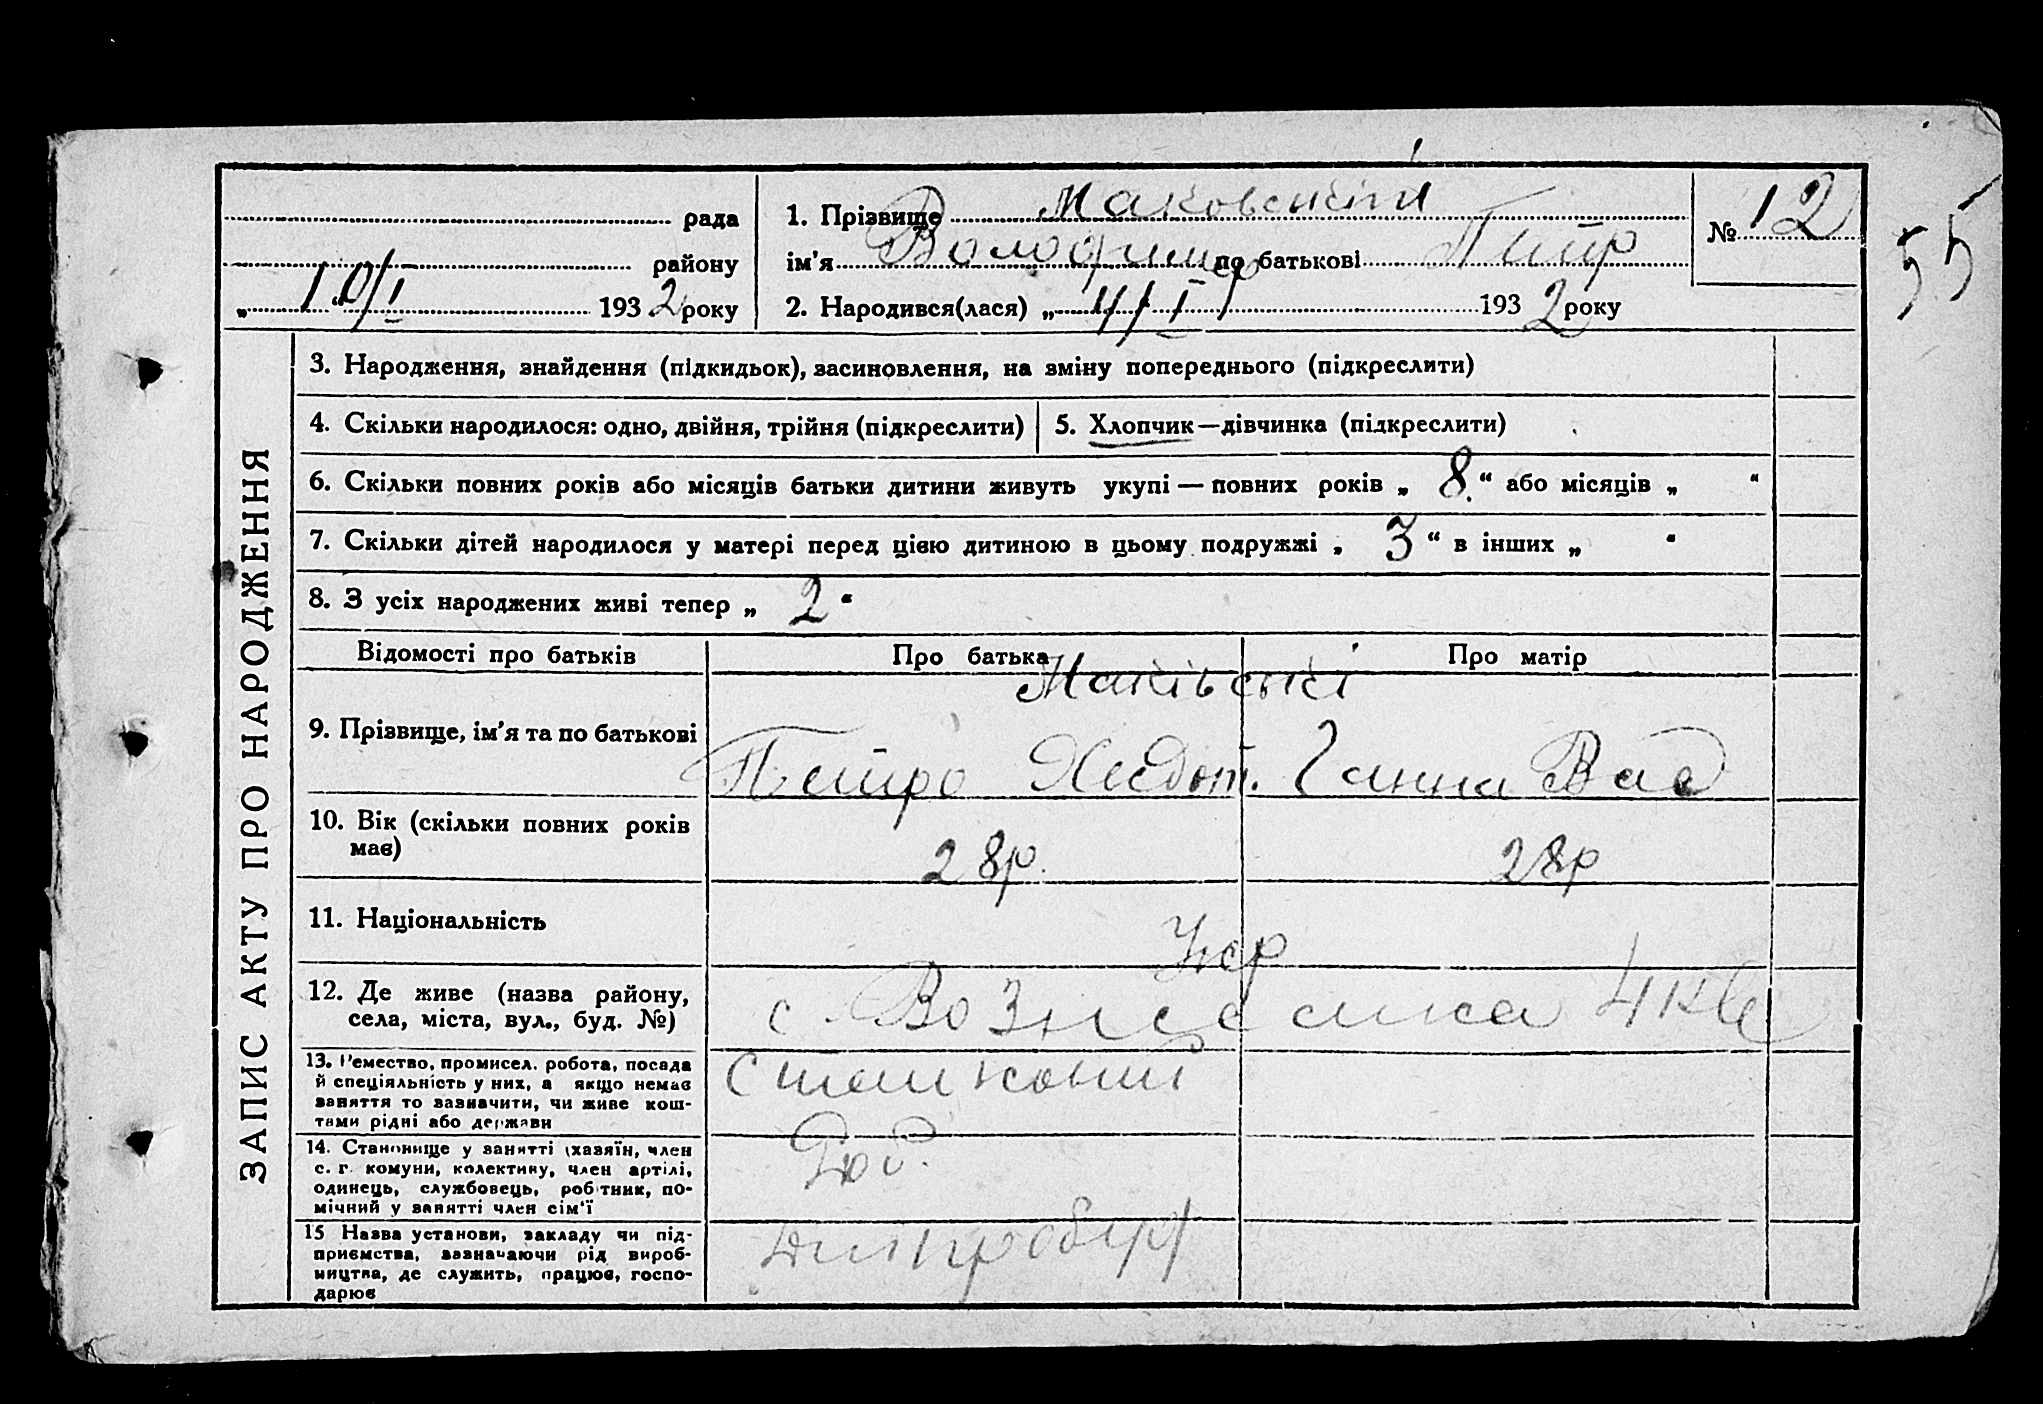 рада
району
„ 10/I “ 1932 року
1. Прізвище Маковський
ім'я Володимир по батькові Петр
2. Народився(лася) „ 4/I “ 1932 року
№ 12
55
ЗАПИС АКТУ ПРО НАРОДЖЕННЯ
3. Народження, знайдення (підкидьок), засиновлення, на зміну попереднього (підкреслити)
4. Скільки народилося: одно, двійня, трійня (підкреслити)
5. Хлопчик—дівчинка (підкреслити)
6. Скільки повних років або місяців батьки дитини живуть укупі — повних років „ 8 “ або місяців „ “
7. Скільки дітей народилося у матері перед цією дитиною в цьому подружжі „ 3 “ в інших „ “
8. З усіх народжених живі тепер „ 2 “
Відомості про батьків
Про батька
Про матір
9. Прізвище, ім'я та по батькові
Маківські
Петро
Ганна Вас
10. Вік (скільки повних років
має)
28р.
28р
11. Національність
Укр
12. Де живе (назва району,
села, міста, вул., буд. №)
с. Вознесенка
13. Ремество, промисел, робота, посада
й спеціяльність у них, а якщо немає
заняття то зазначити, чи живе кош-
тами рідні або держави
14. Становище у занятті (хазяїн, член
с. г. комуни, колективу, член артілі,
одинець, службовець, робітник, по-
мічний у занятті член сім'ї
Роб.
15 Назва установи, закладу чи під-
приємства, зазначаючи рід вироб-
ництва, де служить, працює, госпо-
дарює